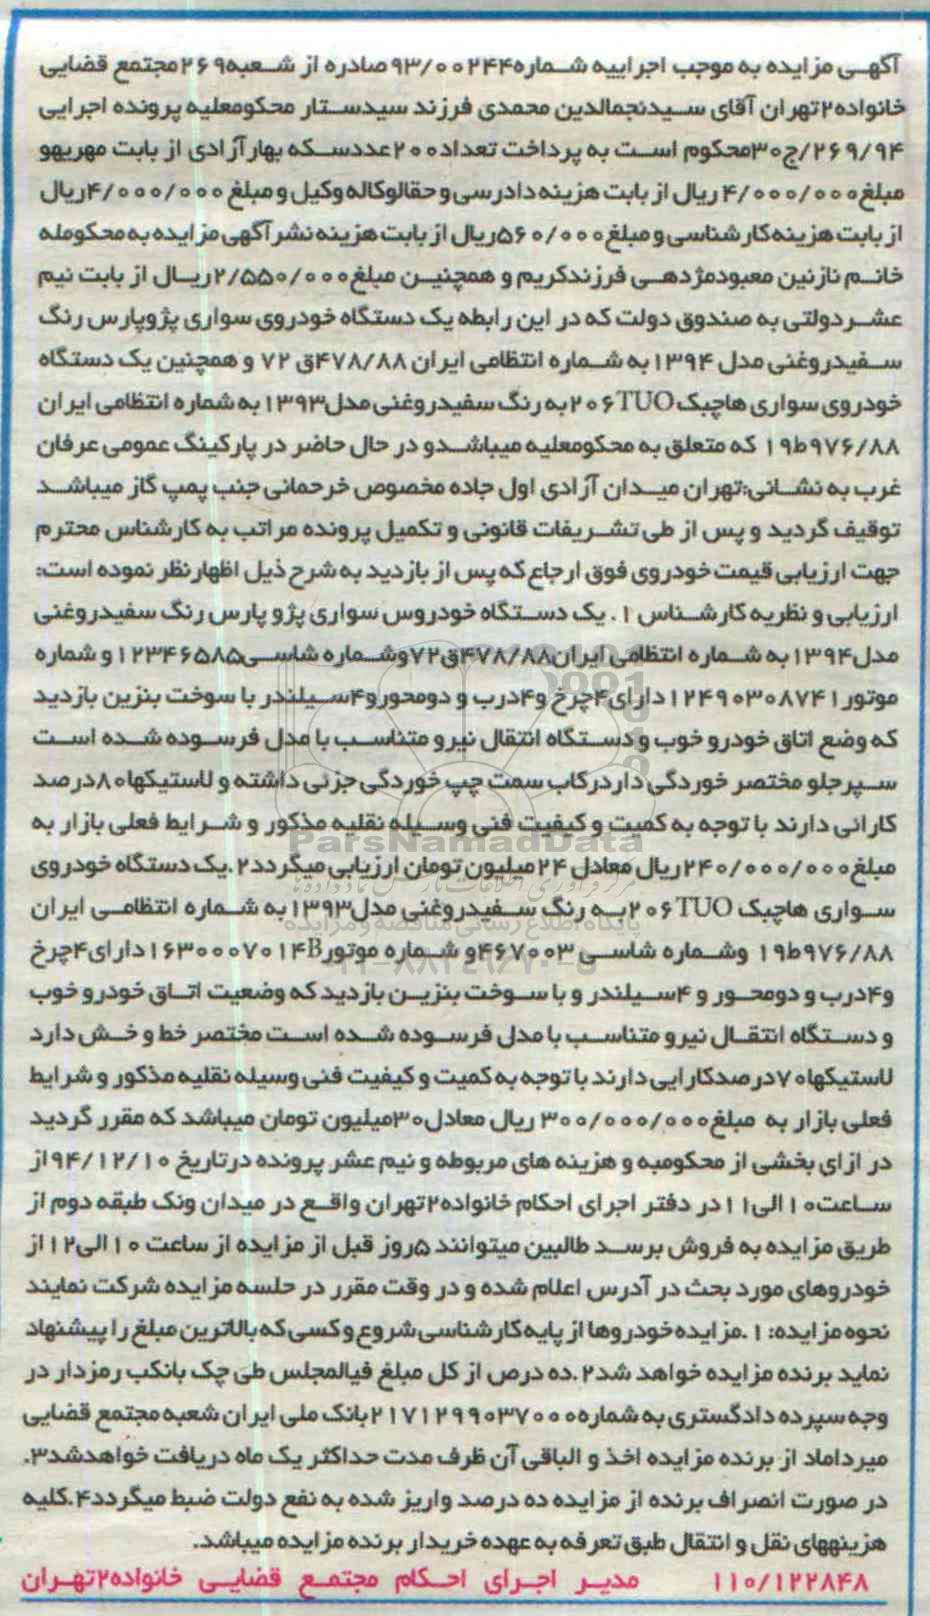 آگهی مزایده به موجب اجراییه شماره۹۳/۰۰۲۴۴صادره از شعبه۲۶۹مجتمع قضایی
خانواده۲تهران آقای سیدنجمالدین محمدی فرزند سیدستار محکومعلیه پرونده اجرایی
۲۶۹/۹۴/ج۳۰محکوم است به پرداخت تعداد۲۰۰عددسکه بهارآزادی از بابت مهریهو
مبلغ۴/۰۰۰/۰۰۰ ریال از بابت هزینه دادرسی و حقالوکاله وکیل و مبلغ ۴/۰۰۰/۰۰۰ریال
از بابت هزینه کارشناسی و مبلغ۵۶۰/۰۰۰ریال از بابت هزینه نشر آگهی مزایده به محکومله
خانم نازنین معبودمژدهی فرزندکریم و همچنین مبلغ۲/۵۵۰/۰۰۰ریال از بابت نیم
عشردولتی به صندوق دولت که در این رابطه یک دستگاه خودروی سواری پژوپارس رنگ
سفیدروغنی مدل ۱۳۹۴ به شماره انتظامی ایران ۴۷۸/۸۸ق ۷۲ و همچنین یک دستگاه
خودروی سواری هاچبک۲۰۶TUO به رنگ سفیدروغنی مدل۱۳۹۳ به شماره انتظامی ایران
۹۷۶/۸۸ط۱۹ که متعلق به محکومعلیه میباشدو در حال حاضر در پارکینگ عمومی عرفان
غرب به نشانی:تهران میدان آزادی اول جاده مخصوص خرحمانی جنب پمپ گاز میباشد
توقیف گردید و پس از طی تشریفات قانونی و تکمیل پرونده مراتب به کارشناس محترم
جهت ارزیابی قیمت خودروی فوق ارجاع که پس از بازدید به شرح ذیل اظهارنظر نموده است:
ارزیابی و نظریه کارشناس ۱. یک دستگاه خودروس سواری پژو پارس رنگ سفیدروغنی
مدل۱۳۹۴ به شماره انتظامی ایران۴۷۸/۸۸ق۷۲وشماره شاسی۱۲۳۴۶۵۸۵ و شماره
موتور۱۲۴۹۰۳۰۸۷۴۱ دارای۴چرخ و۴درب و دومحورو۴سیلندر با سوخت بنزین بازدید
که وضع اتاق خودرو خوب و دستگاه انتقال نیرو متناسب با مدل فرسوده شده است
سپرجلو مختصر خوردگی داردرکاب سمت چپ خوردگی جزئی داشته و لاستیکها۸۰درصد
کارائی دارند با توجه به کمیت و کیفیت فنی وسیله نقلیه مذکور و شرایط فعلی بازار به
مبلغ۲۴۰/۰۰۰/۰۰۰ریال معادل ۲۴میلیون تومان ارزیابی میگردد۲.یک دستگاه خودروی
سواری هاچبک ۲۰۶TUOبه رنگ سفیدروغنی مدل۱۳۹۳به شماره انتظامی ایران
۹۷۶/۸۸ط۱۹ وشماره شاسی ۴۶۷۰۰۳و شماره موتور۱۶۳۰۰۰۷۰۱۴Bدارای۴چرخ
و۴درب و دومحور و ۴سیلندر و با سوخت بنزین بازدید که وضعیت اتاق خودرو خوب
و دستگاه انتقال نیرو متناسب با مدل فرسوده شده است مختصر خط و خش دارد
لاستیکها۷۰درصدکارایی دارند با توجه به کمیت و کیفیت فنی وسیله نقلیه مذکور و شرایط
فعلی بازار به مبلغ۳۰۰/۰۰۰/۰۰۰ ریال معادل۳۰میلیون تومان میباشد که مقرر گردید
در ازای بخشی از محکومبه و هزینه های مربوطه و نیم عشر پرونده درتاریخ ۹۴/۱۲/۱۰از
ساعت۱۰الی۱۱ در دفتر اجرای احکام خانواده۲تهران واقع در میدان ونک طبقه دوم از
طریق مزایده به فروش برسد طالبین میتوانند ۵روز قبل از مزایده از ساعت ۱۰الی۱۲ از
خودروهای مورد بحث در آدرس اعلام شده و در وقت مقرر در حلسه مزایده شرکت نمایند
نحوه مزایده: ۱.مزایده خودروها از پایه کارشناسی شروع و کسی که بالاترین مبلغ را پیشنهاد
نماید برنده مزایده خواهد شد۲.ده درص از کل مبلغ فیالمجلس طی چک بانکب رمزدار در
وجه سپرده دادگستری به شماره۲۱۷۱۲۹۹۰۳۷۰۰۰بانک ملی ایران شعبه مجتمع قضایی
میرداماد از برنده مزایده اخذ و الباقی آن ظرف مدت حداکثر یک ماه دریافت خواهدشد۳.
در صورت انصراف برنده از مزایده ده درصد واریز شده به نفع دولت ضبط میگردد۴.کلیه
هزینههای نقل و انتقال طبق تعرفه به عهده خریدار برنده مزایده میباشد.
۱۱۰/۱۲۲۸۴۸ مدیر اجرای احکام مجتمع قضایی خانواده۲تهران
ParsNamadData
پایگاه اطلاع رسانی مناقصه و مزایده